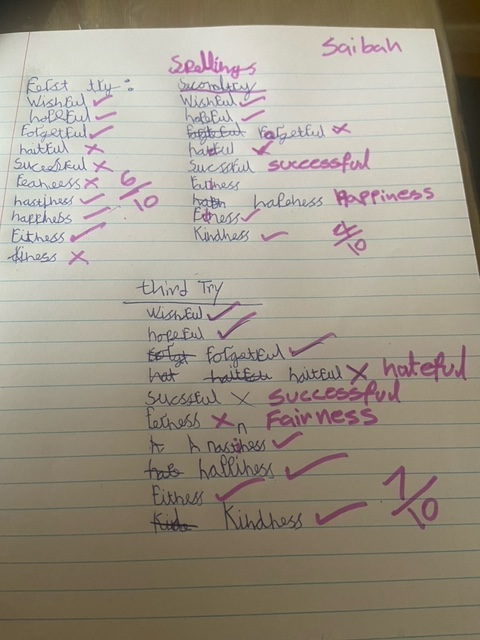 Saibah
Spellings
First try:
Wishful ✓
hopeful ✓
Forgetful ✓
haitful ✗
Sucessful ✗
Fearness ✗
hastiness ✓
happhess ✓
Fitness ✓
Kiness ✗
6/10
Second try
Wishful ✓
hopeful ✓
Forgetful ✗
hatful ✓
Sucssful successful
Fairness
hapehess Happiness
Fitness ✓
Kindness ✓
4/10
third Try
Wishful ✓
hopeful ✓
Forgetful ✓
hat haitful haitful ✗ hateful
Sucssful ✗ successful
ferness ✗ Fairness
h h nastihess ✓
halliness ✓
Fitness ✓
Kindness ✓
7/10